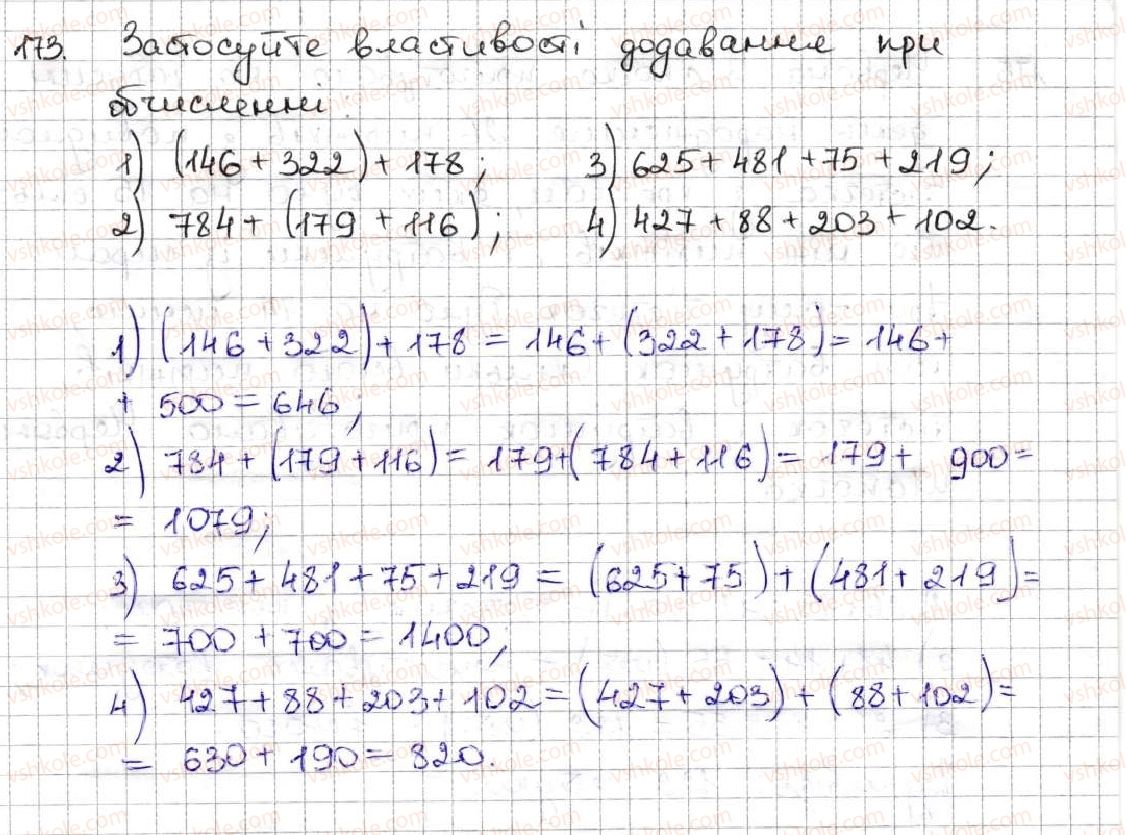 173. Застосуйте властивості додавання при
обчисленні.
1) (146 + 322) + 178; 3) 625 + 481 + 75 + 219;
2) 784 + (179 + 116); 4) 427 + 88 + 203 + 102.
1) (146 + 322) + 178 = 146 + (322 + 178) = 146 +
+ 500 = 646;
2) 784 + (179 + 116) = 179 + (784 + 116) = 179 + 900 =
= 1079;
3) 625 + 481 + 75 + 219 = (625 + 75) + (481 + 219) =
= 700 + 700 = 1400;
4) 427 + 88 + 203 + 102 = (427 + 203) + (88 + 102) =
= 630 + 190 = 820.